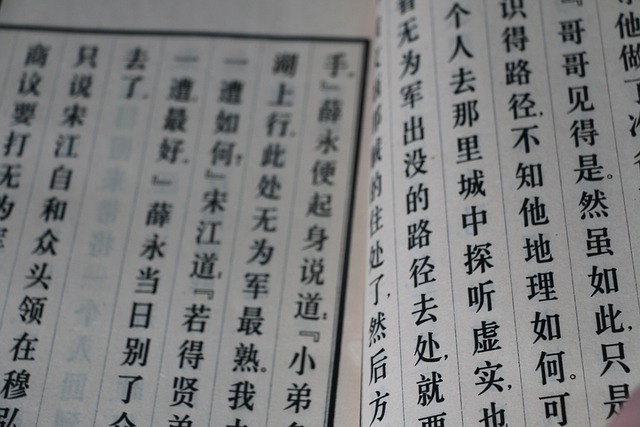 他做
『哥哥见得是。然虽如此,只是
识得路径,不知他地理如何。可
个人去那里城中探听虚实,也
看无为军出没的路径去处,就要
的住处了,然后方
手。』薛永便起身说道:『小弟
湖上行。此处无为军最熟。我
一遭如何?』宋江道:『若得贤弟
一遭最好。』薛永当日别了
去了。
只说宋江自和众头领在穆弘
商议要打无为军